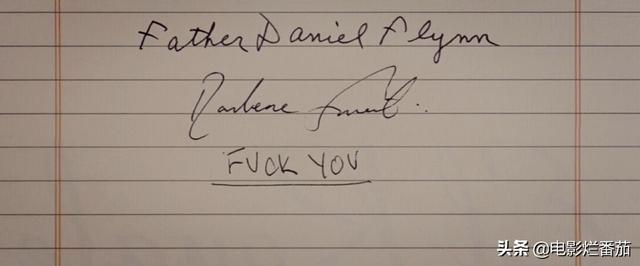 Father Daniel Flynn
Darlene
FUCK YOU
头条 @电影烂番茄